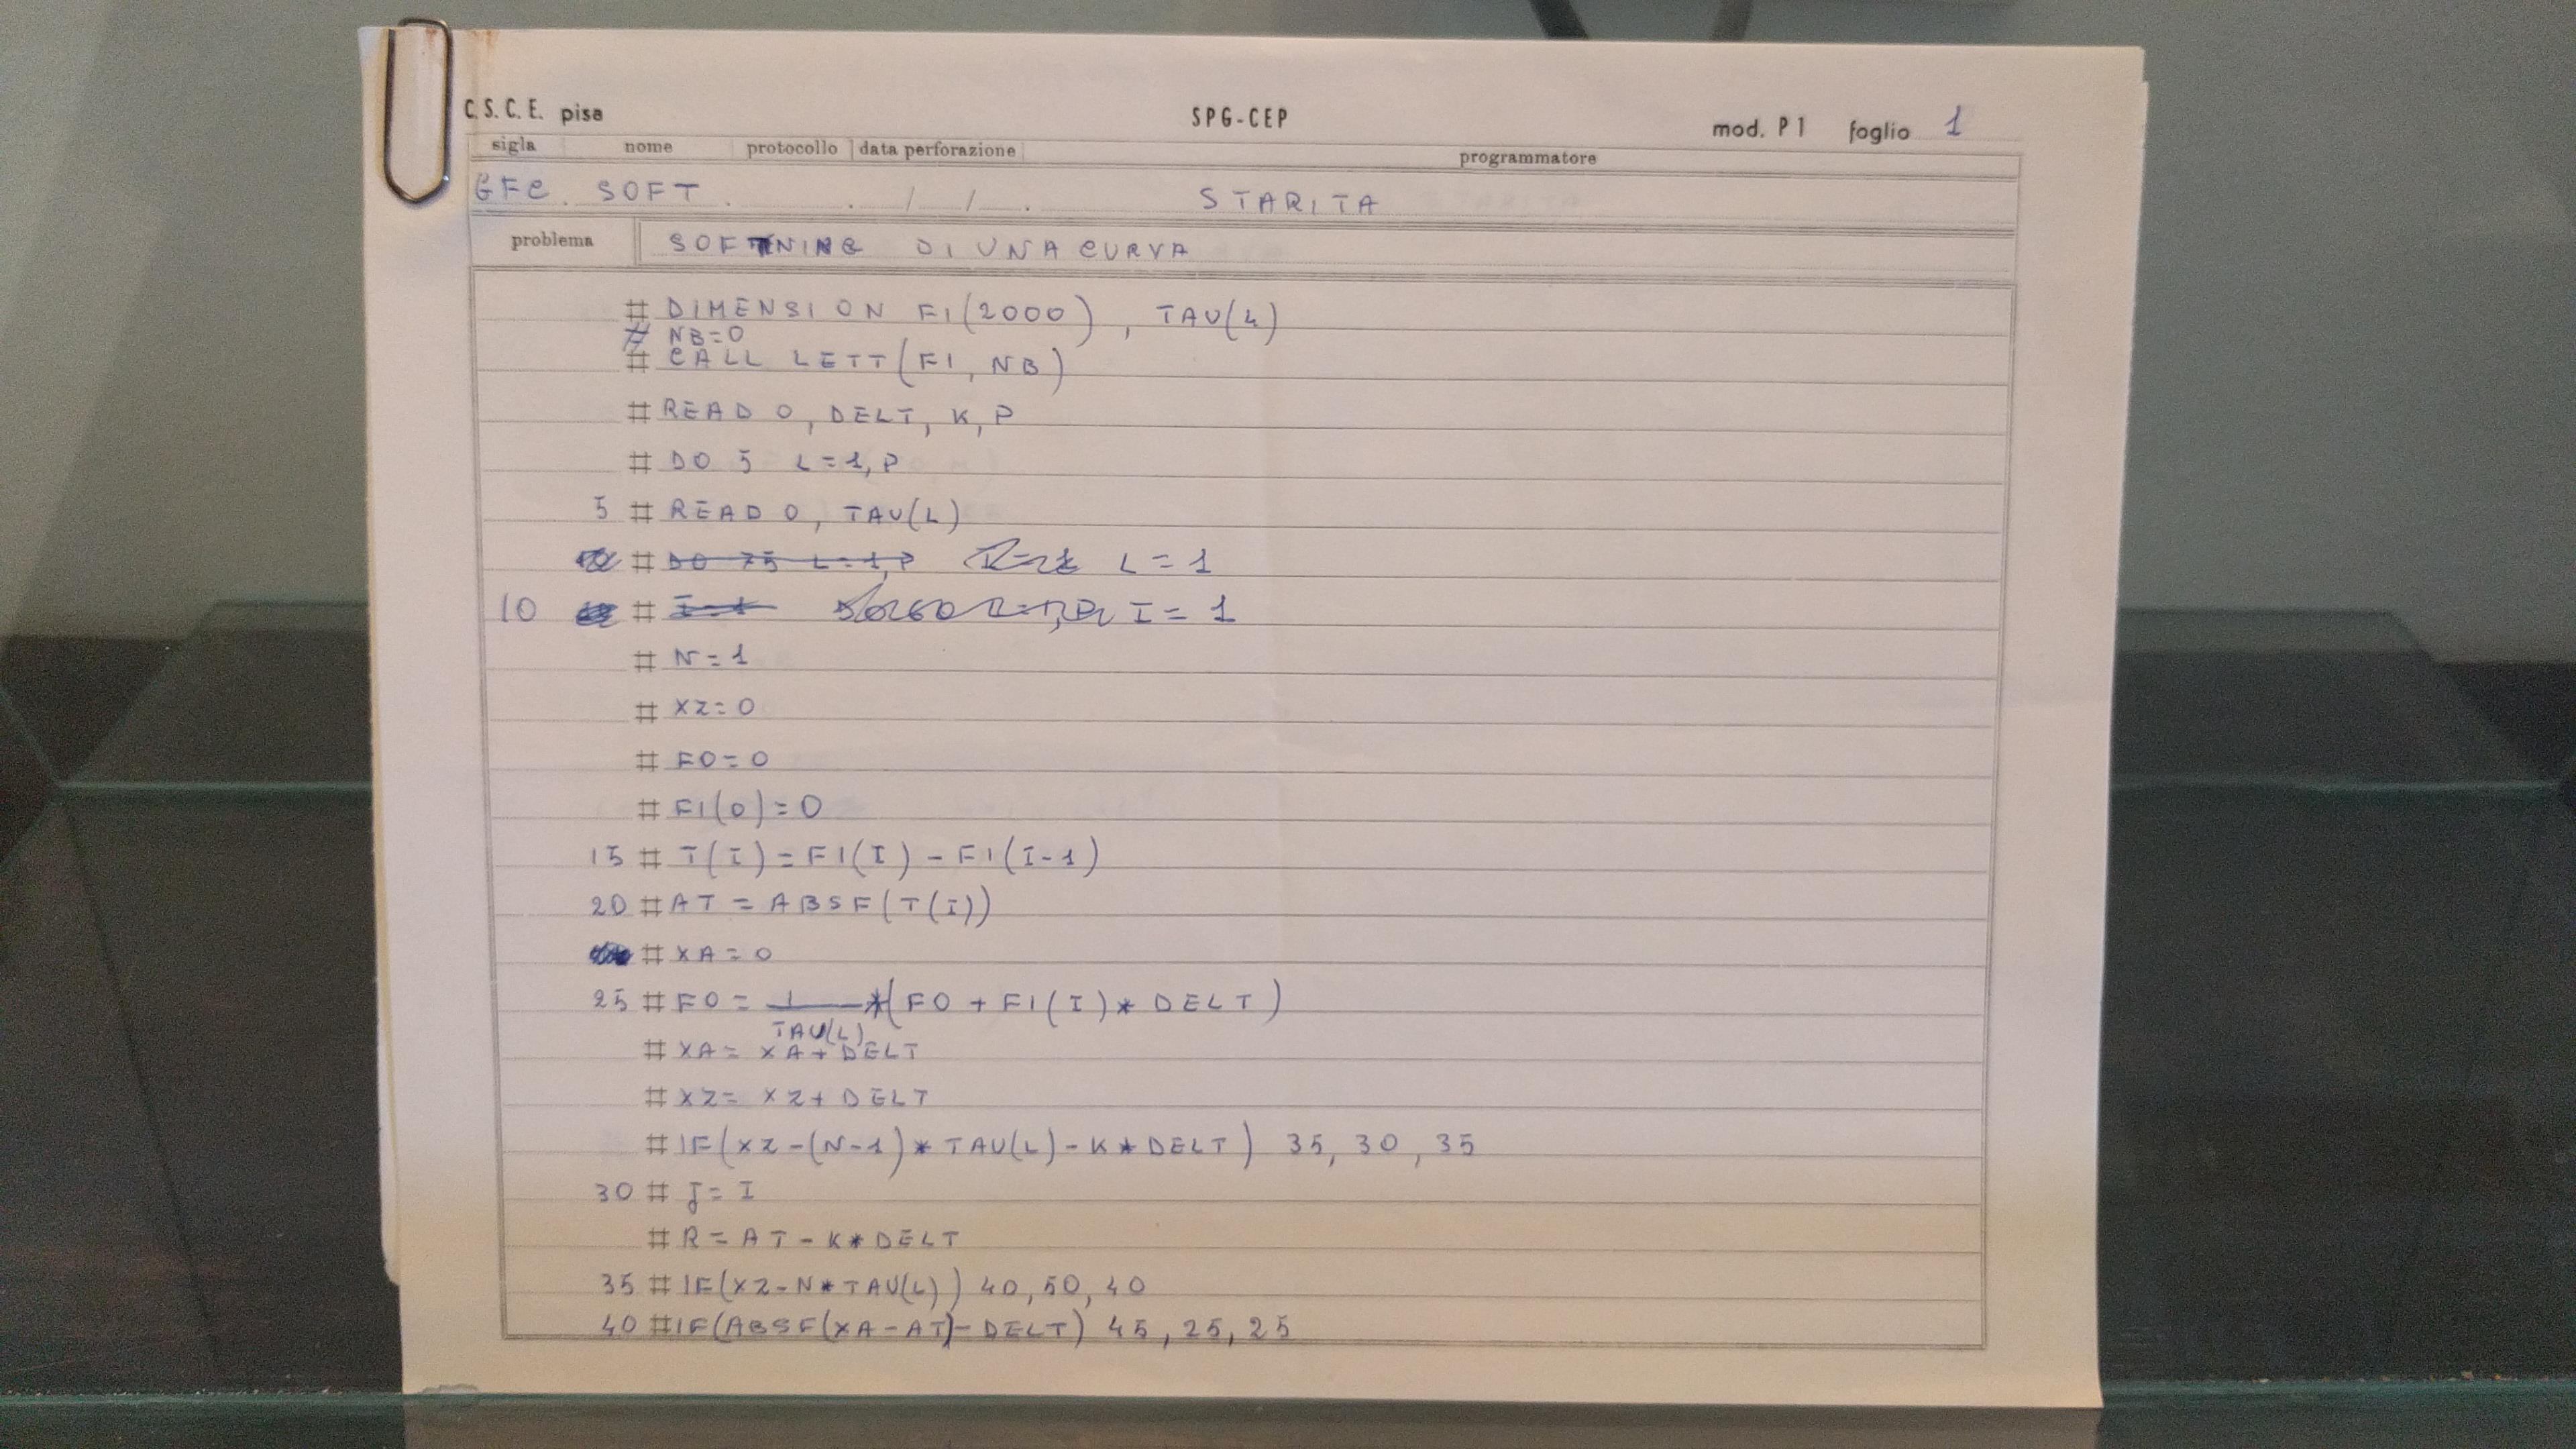 C.S.C.E. pisa SPG-CEP mod. P1 foglio 1
sigla nome protocollo data perforazione programmatore
GFC. SOFT. . / / . STARITA
problema SOFTNING DI UNA CURVA
# DIMENSION FI(2000), TAU(4)
# NB=0
# CALL LETT(FI, NB)
# READ 0, DELT, K, P
# DO 5 L=1,P
5 # READ 0, TAU(L)
# DO 75 L=1,P L=1
10 # I=1 I=1
# N=1
# XZ=0
# FO=0
# FI(0)=0
15 # T(I)=FI(I)-FI(I-1)
20 # AT = ABSF(T(I))
# XA=0
25 # FO= 1 *(FO + FI(I)* DELT)
TAU(L)
# XA= XA+DELT
# XZ= XZ+DELT
# IF(XZ-(N-1)*TAU(L)-K*DELT) 35, 30, 35
30 # J=I
# R=AT-K*DELT
35 # IF(XZ-N*TAU(L)) 40,50,40
40 # IF(ABSF(XA-AT)-DELT) 45,25,25